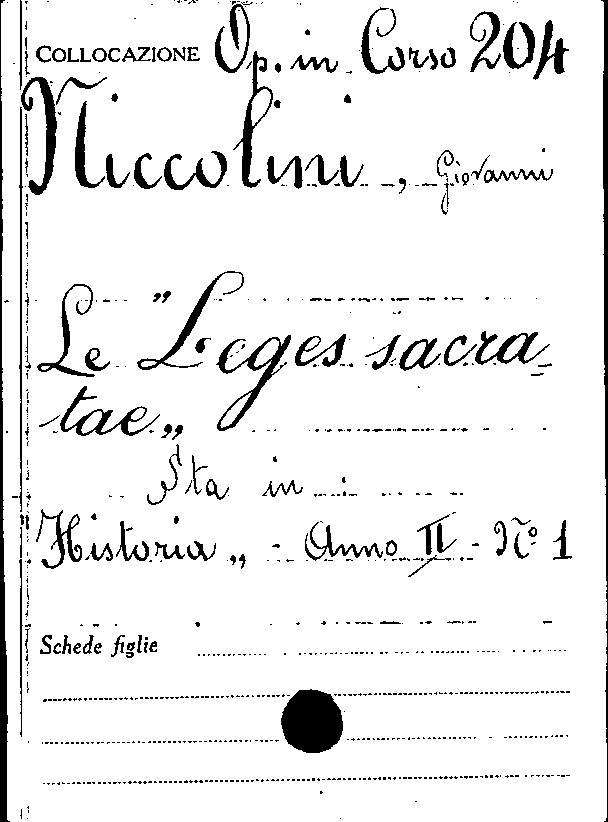 COLLOCAZIONE Op. in Corso 204
Niccolini, Giovanni
Le "Leges sacra=
tae„
Sta in :
"Historia„ - Anno II - N° 1
Schede figlie